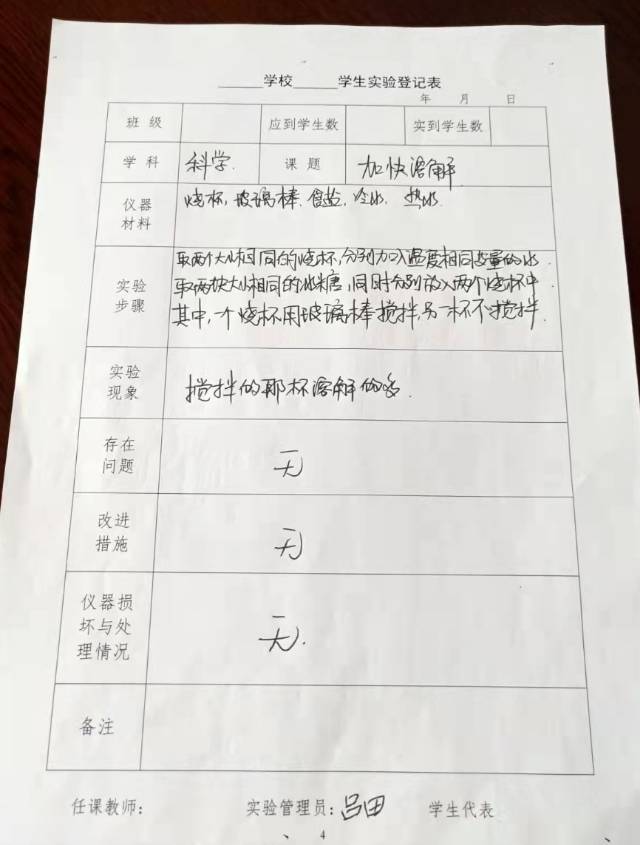 ______学校______学生实验登记表
年 月 日
班 级 应到学生数 实到学生数
学 科 科学 课 题 加快溶解
仪器材料 烧杯,玻璃棒.食盐.冷水.热水
实验步骤
取两个大小相同的烧杯,分别加入温度相同等量的水
取两块大小相同的冰糖,同时分别放入两个烧杯中
其中,一个烧杯用玻璃棒搅拌,另一杯不搅拌.
实验现象 搅拌的那杯溶解的多.
存在问题 无
改进措施 无
仪器损坏与处理情况 无.
备注
任课教师: 实验管理员:吕田 学生代表
4